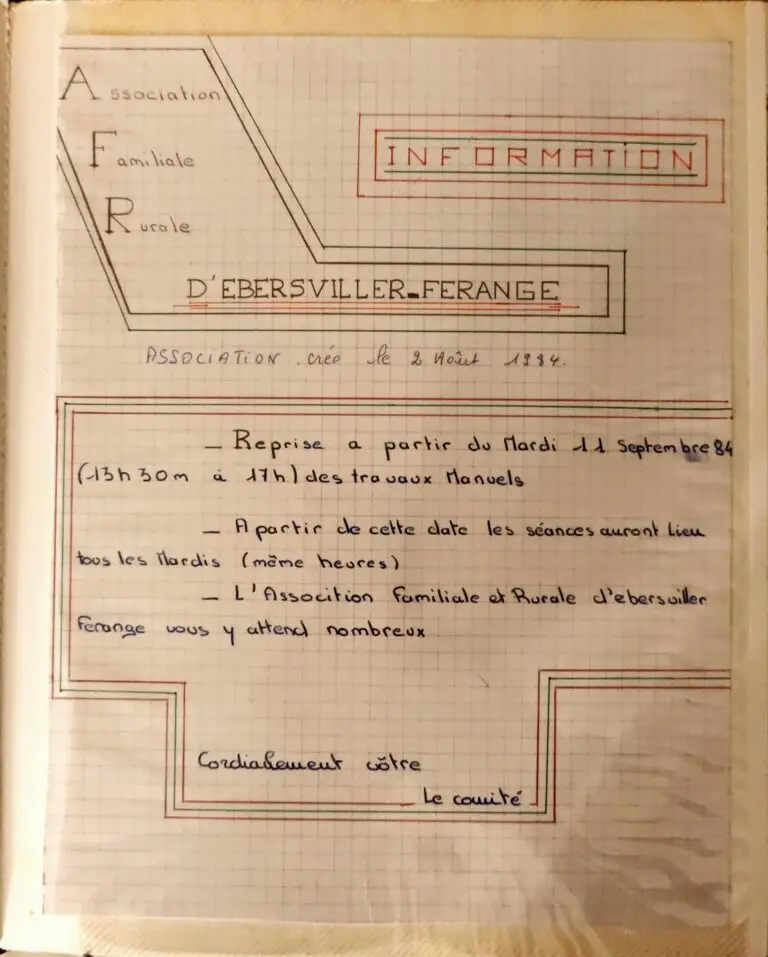 Association
Familiale
Rurale
INFORMATION
D'EBERSVILLER-FERANGE
ASSOCIATION. crée le 2 Août 1984.
— Reprise a partir du Mardi 11 Septembre 84
(13h30m à 17h) des travaux Manuels
— A partir de cette date les séances auront lieu
tous les Mardis (même heures)
— L'Assocition Familiale et Rurale d'ebersviller
Ferange vous y attend nombreux
Cordialement vôtre
Le comité